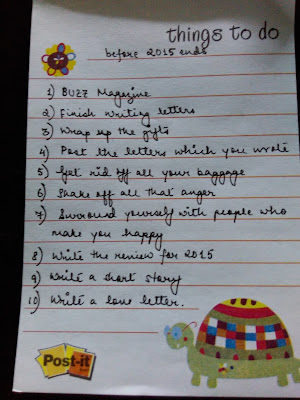 things to do
before 2015 ends
1) BUZZ Magazine
2) Finish writing letters
3) Wrap up the gifts
4) Post the letters which you wrote
5) Get rid off all your baggage
6) Shake off all that anger
7) Surround yourself with people who
make you happy
8) Write the review for 2015
9) Write a short story
10) Write a love letter.
Post-it